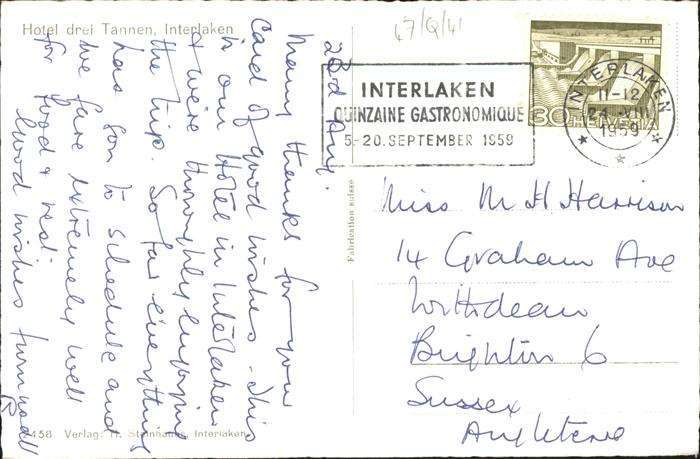 Hotel drei Tannen, Interlaken
47/Q/41
INTERLAKEN
QUINZAINE GASTRONOMIQUE
5-20. SEPTEMBER 1959
INTERLAKEN
11-12
1959
30 HELVETIA
23rd Aug.
Many thanks for your
card of good wishes. This
is our Hotel in Interlaken
& were thoroughly enjoying
the trip. So far everything
has gon to schedule and
we fare extremely well
for food &
Good wishes from all
Fabrication suisse
Miss M H Harrison
14 Graham Ave
Withdean
Brighton 6
Sussex
Angleterre
458 Verlag: H. Steinhauer, Interlaken